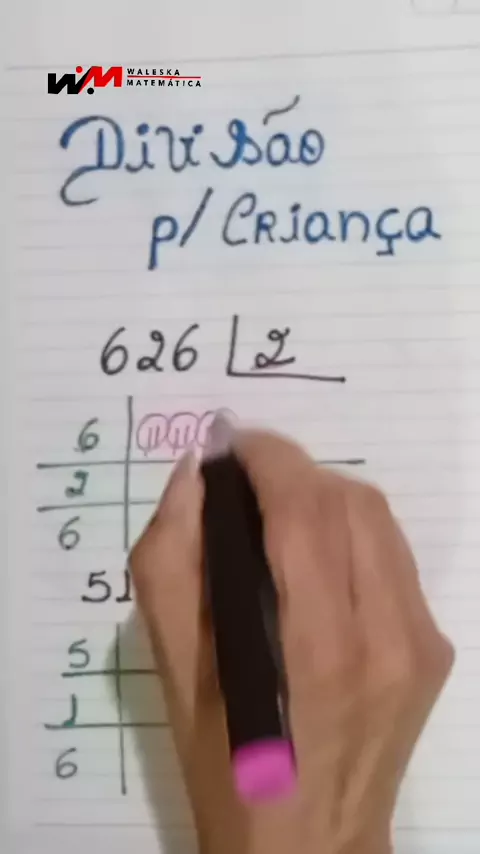 WM WALESKA
MATEMÁTICA
Divisão
p/ Criança
626 2
6
2
6
51
5
1
6